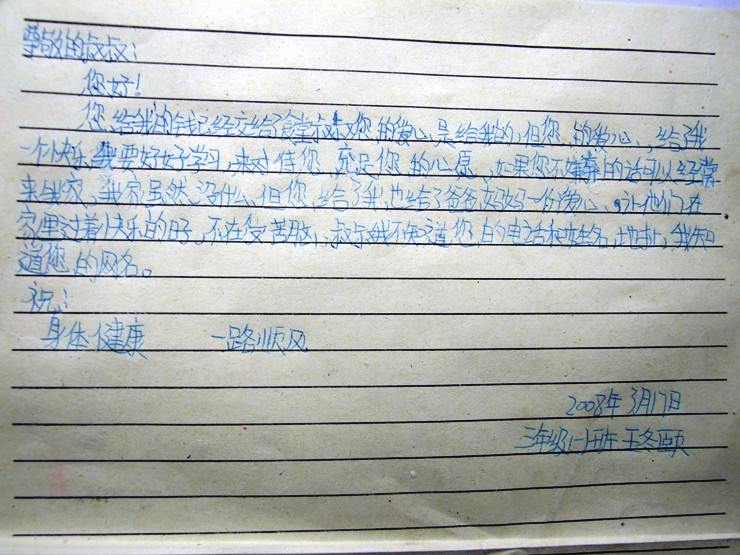 尊敬的叔叔:
您好!
您给我的钱已经交给了食堂叔叔您的爱心是给我的,但您,的爱心,给了我
一个快乐,我要好好学习,来对待您,充足您的心愿,如果您不嫌弃的话可以经常
来我家,我家虽然没什么,但您,给了我,也给了爸爸妈妈一份爱心,让他们在
家里过着快乐的日子,不在受苦,叔叔我不知道您的电话和姓名,地扯,我知
道您的网名。
祝:
身体健康 一路顺风
2008年3月17日
三年级(一)班 王冬颐